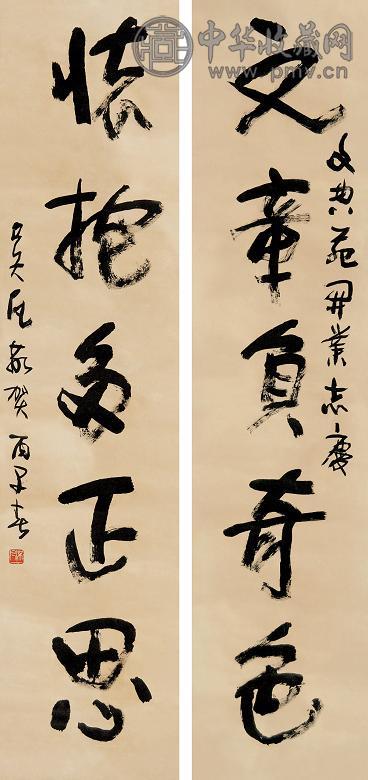 中华收藏网
www.pmv.cn
文典苑開業志慶
文章負奇色
懷抱多正思
吳凡敬賀丙子春